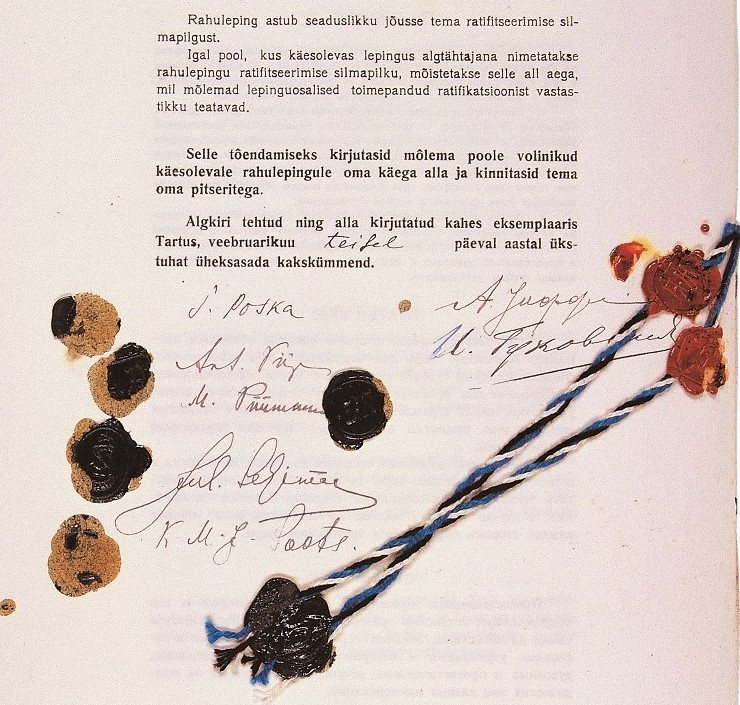 Rahuleping astub seaduslikku jõusse tema ratifitseerimise sil-
mapilgust.
Igal pool, kus käesolevas lepingus algtähtajana nimetatakse
rahulepingu ratifitseerimise silmapilku, mõistetakse selle all aega,
mil mõlemad lepinguosalised toimepandud ratifikatsioonist vastas-
tikku teatavad.
Selle tôendamiseks kirjutasid môlema poole volinikud
käesolevale rahulepingule oma käega alla ja kinnitasid tema
oma pitseritega.
Algkiri tehtud ning alla kirjutatud kahes eksemplaaris
Tartus, veebruarikuu teisel päeval aastal üks-
tuhat üheksasada kakskümmend.
J. Poska
А. Иоффе
Ant. Piip
И. Гуковский
M. Püümann
Jul. Seljamaa
Soots.